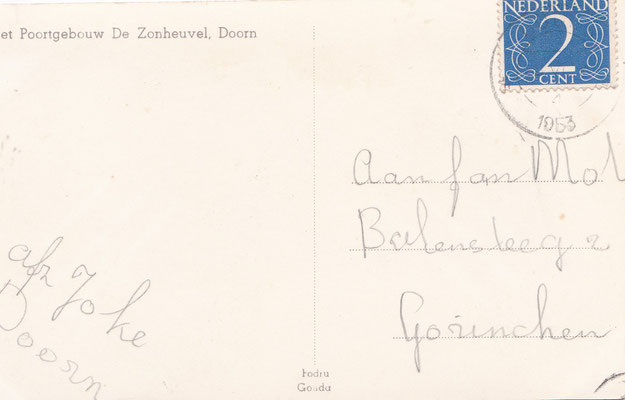 et Poortgebouw De Zonheuvel, Doorn
NEDERLAND
2
CENT
1953
Aan Jan Mol
afz Joke
Doorn
Gorinchem
Fodru
Gouda